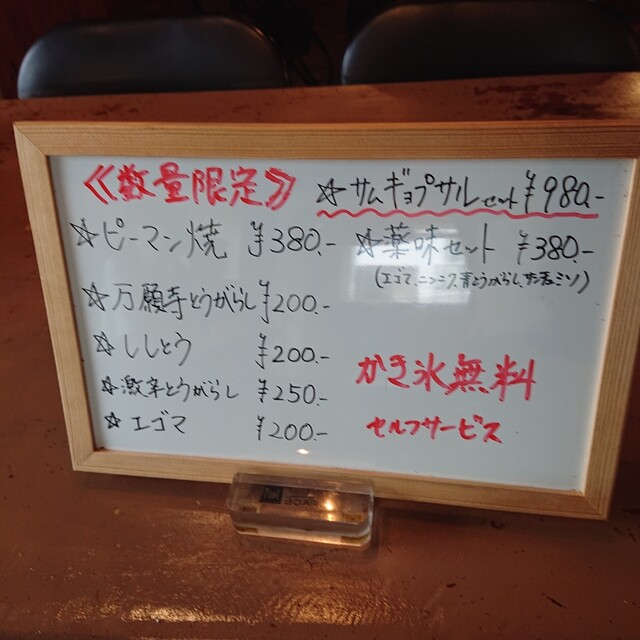 ≪数量限定≫
☆ピーマン焼 ¥380.-
☆万願寺とうがらし ¥200.-
☆ししとう ¥200.-
☆激辛とうがらし ¥250.-
☆エゴマ ¥200.-
☆サムギョプサルセット ¥980.-
☆薬味セット ¥380.-
(エゴマ、ニンニク、青とうがらし、サンチュ、ミソ)
かき氷無料
セルフサービス